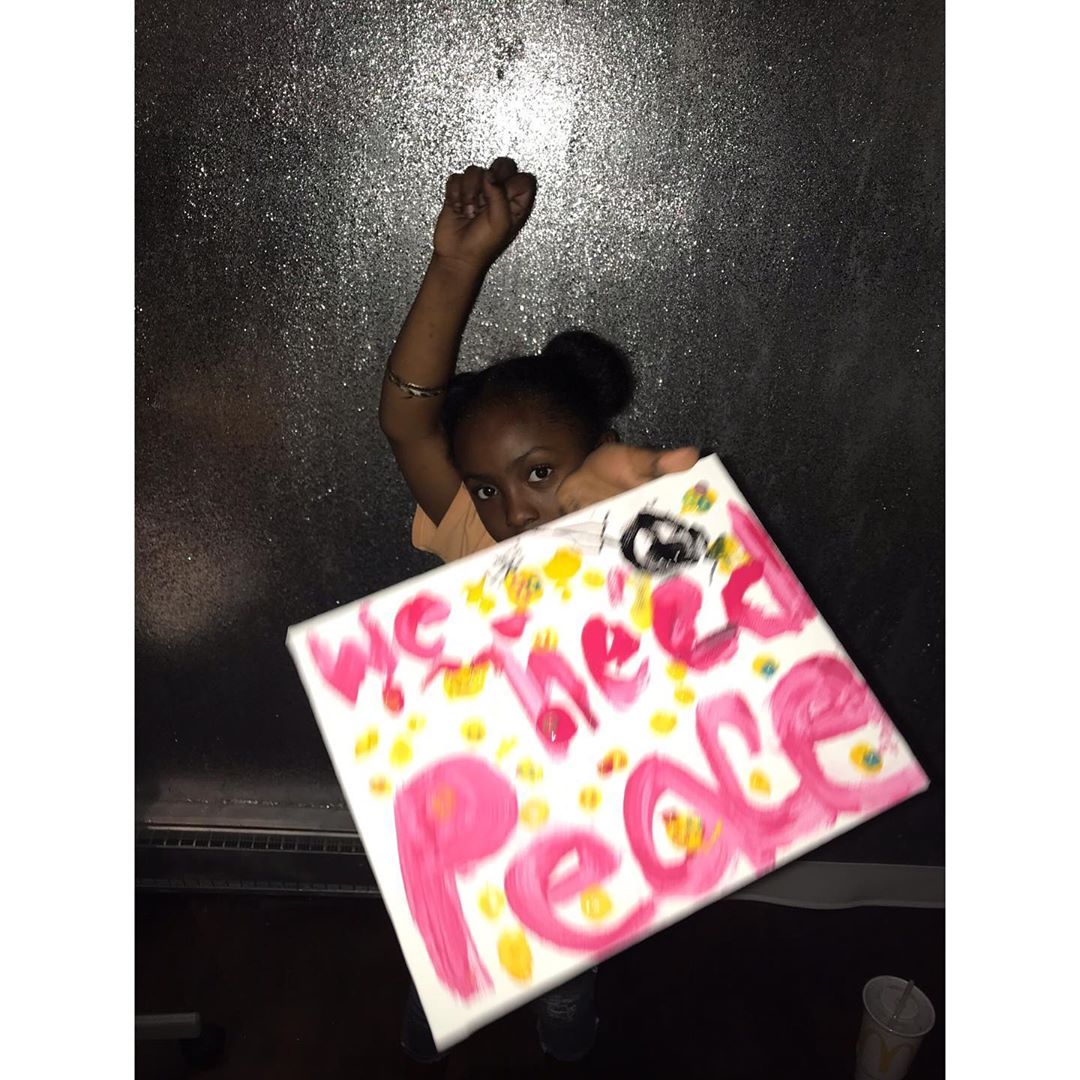 We need
Peace